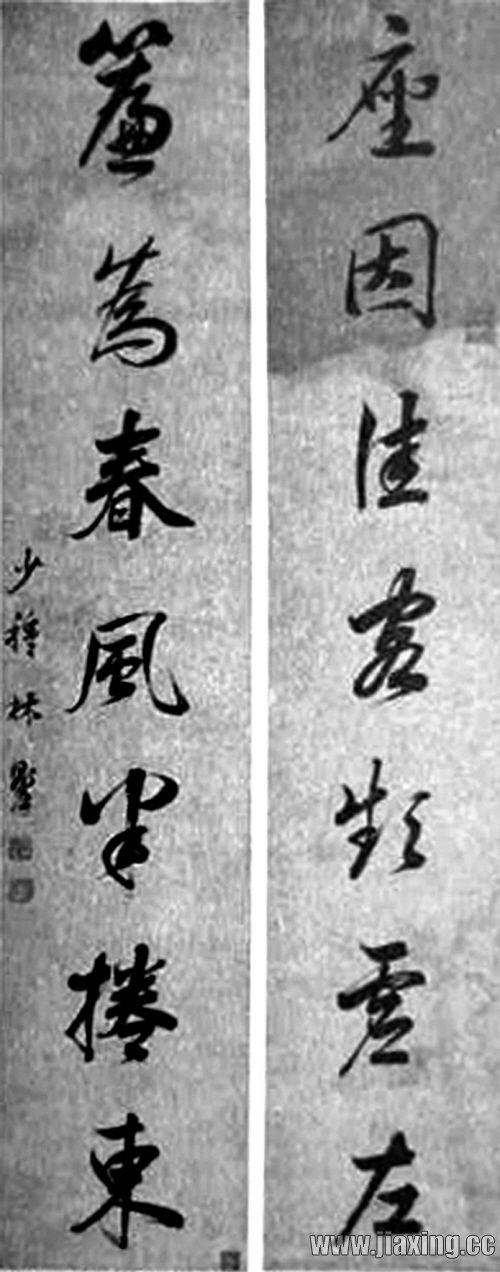 座因佳客頻虛左
簾為春風半捲東
少穆林
www.jiaxing.cc